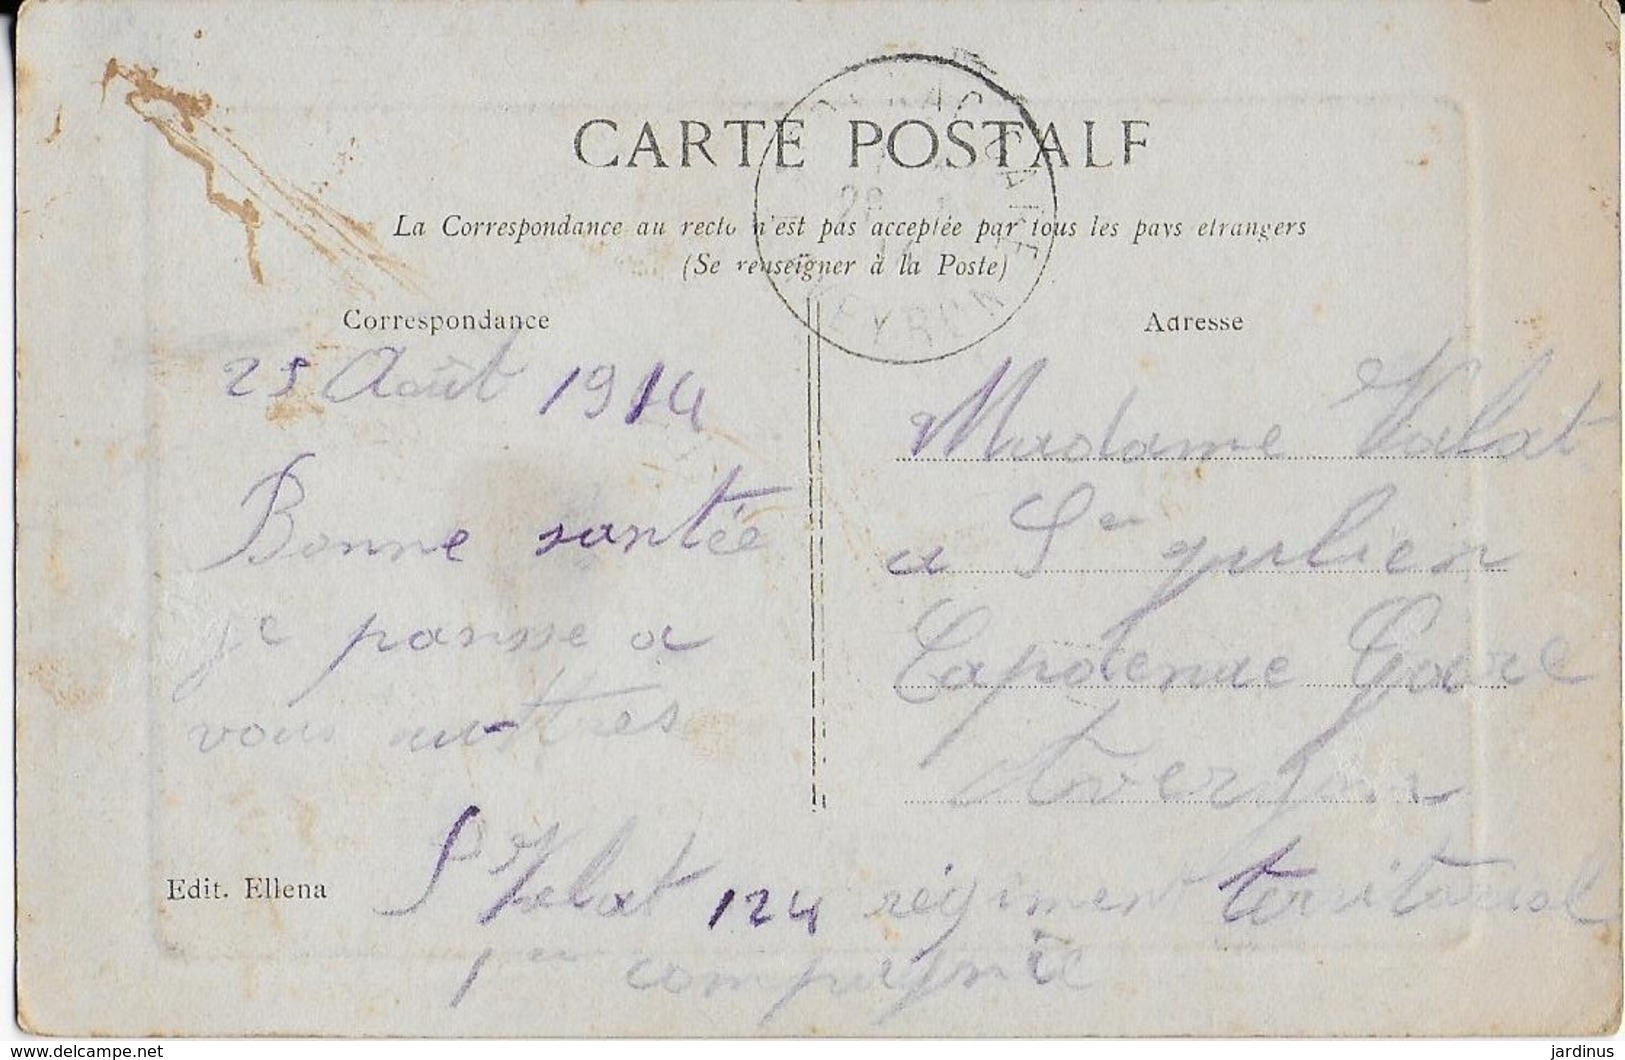 CARTE POSTALE
La Correspondance au recto n'est pas acceptée par tous les pays etrangers
(Se renseigner à la Poste)
Correspondance
Adresse
25 Août 1914
Bonne santée
je pansse a
vous auttres
Madame Valat
a St julien
Capdenac Gare
Aveyron
Edit. Ellena
Valat 124 régiment territorial
1re compagnie
AVEYRON
www.delcampe.net
jardinus